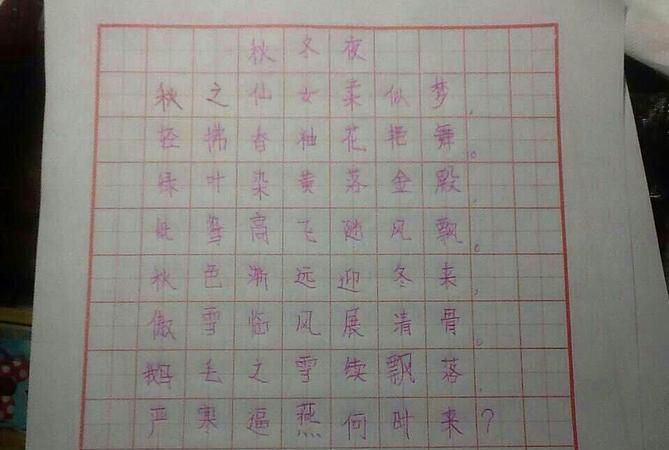 秋冬夜
秋之仙女柔似梦,
轻拂香袖花艳舞。
绿叶染黄落金殿,
鸳高飞随风飘。
秋色渐远迎冬来,
傲雪临风展清骨。
鹅毛之雪续飘落,
严寒逼燕何时来?